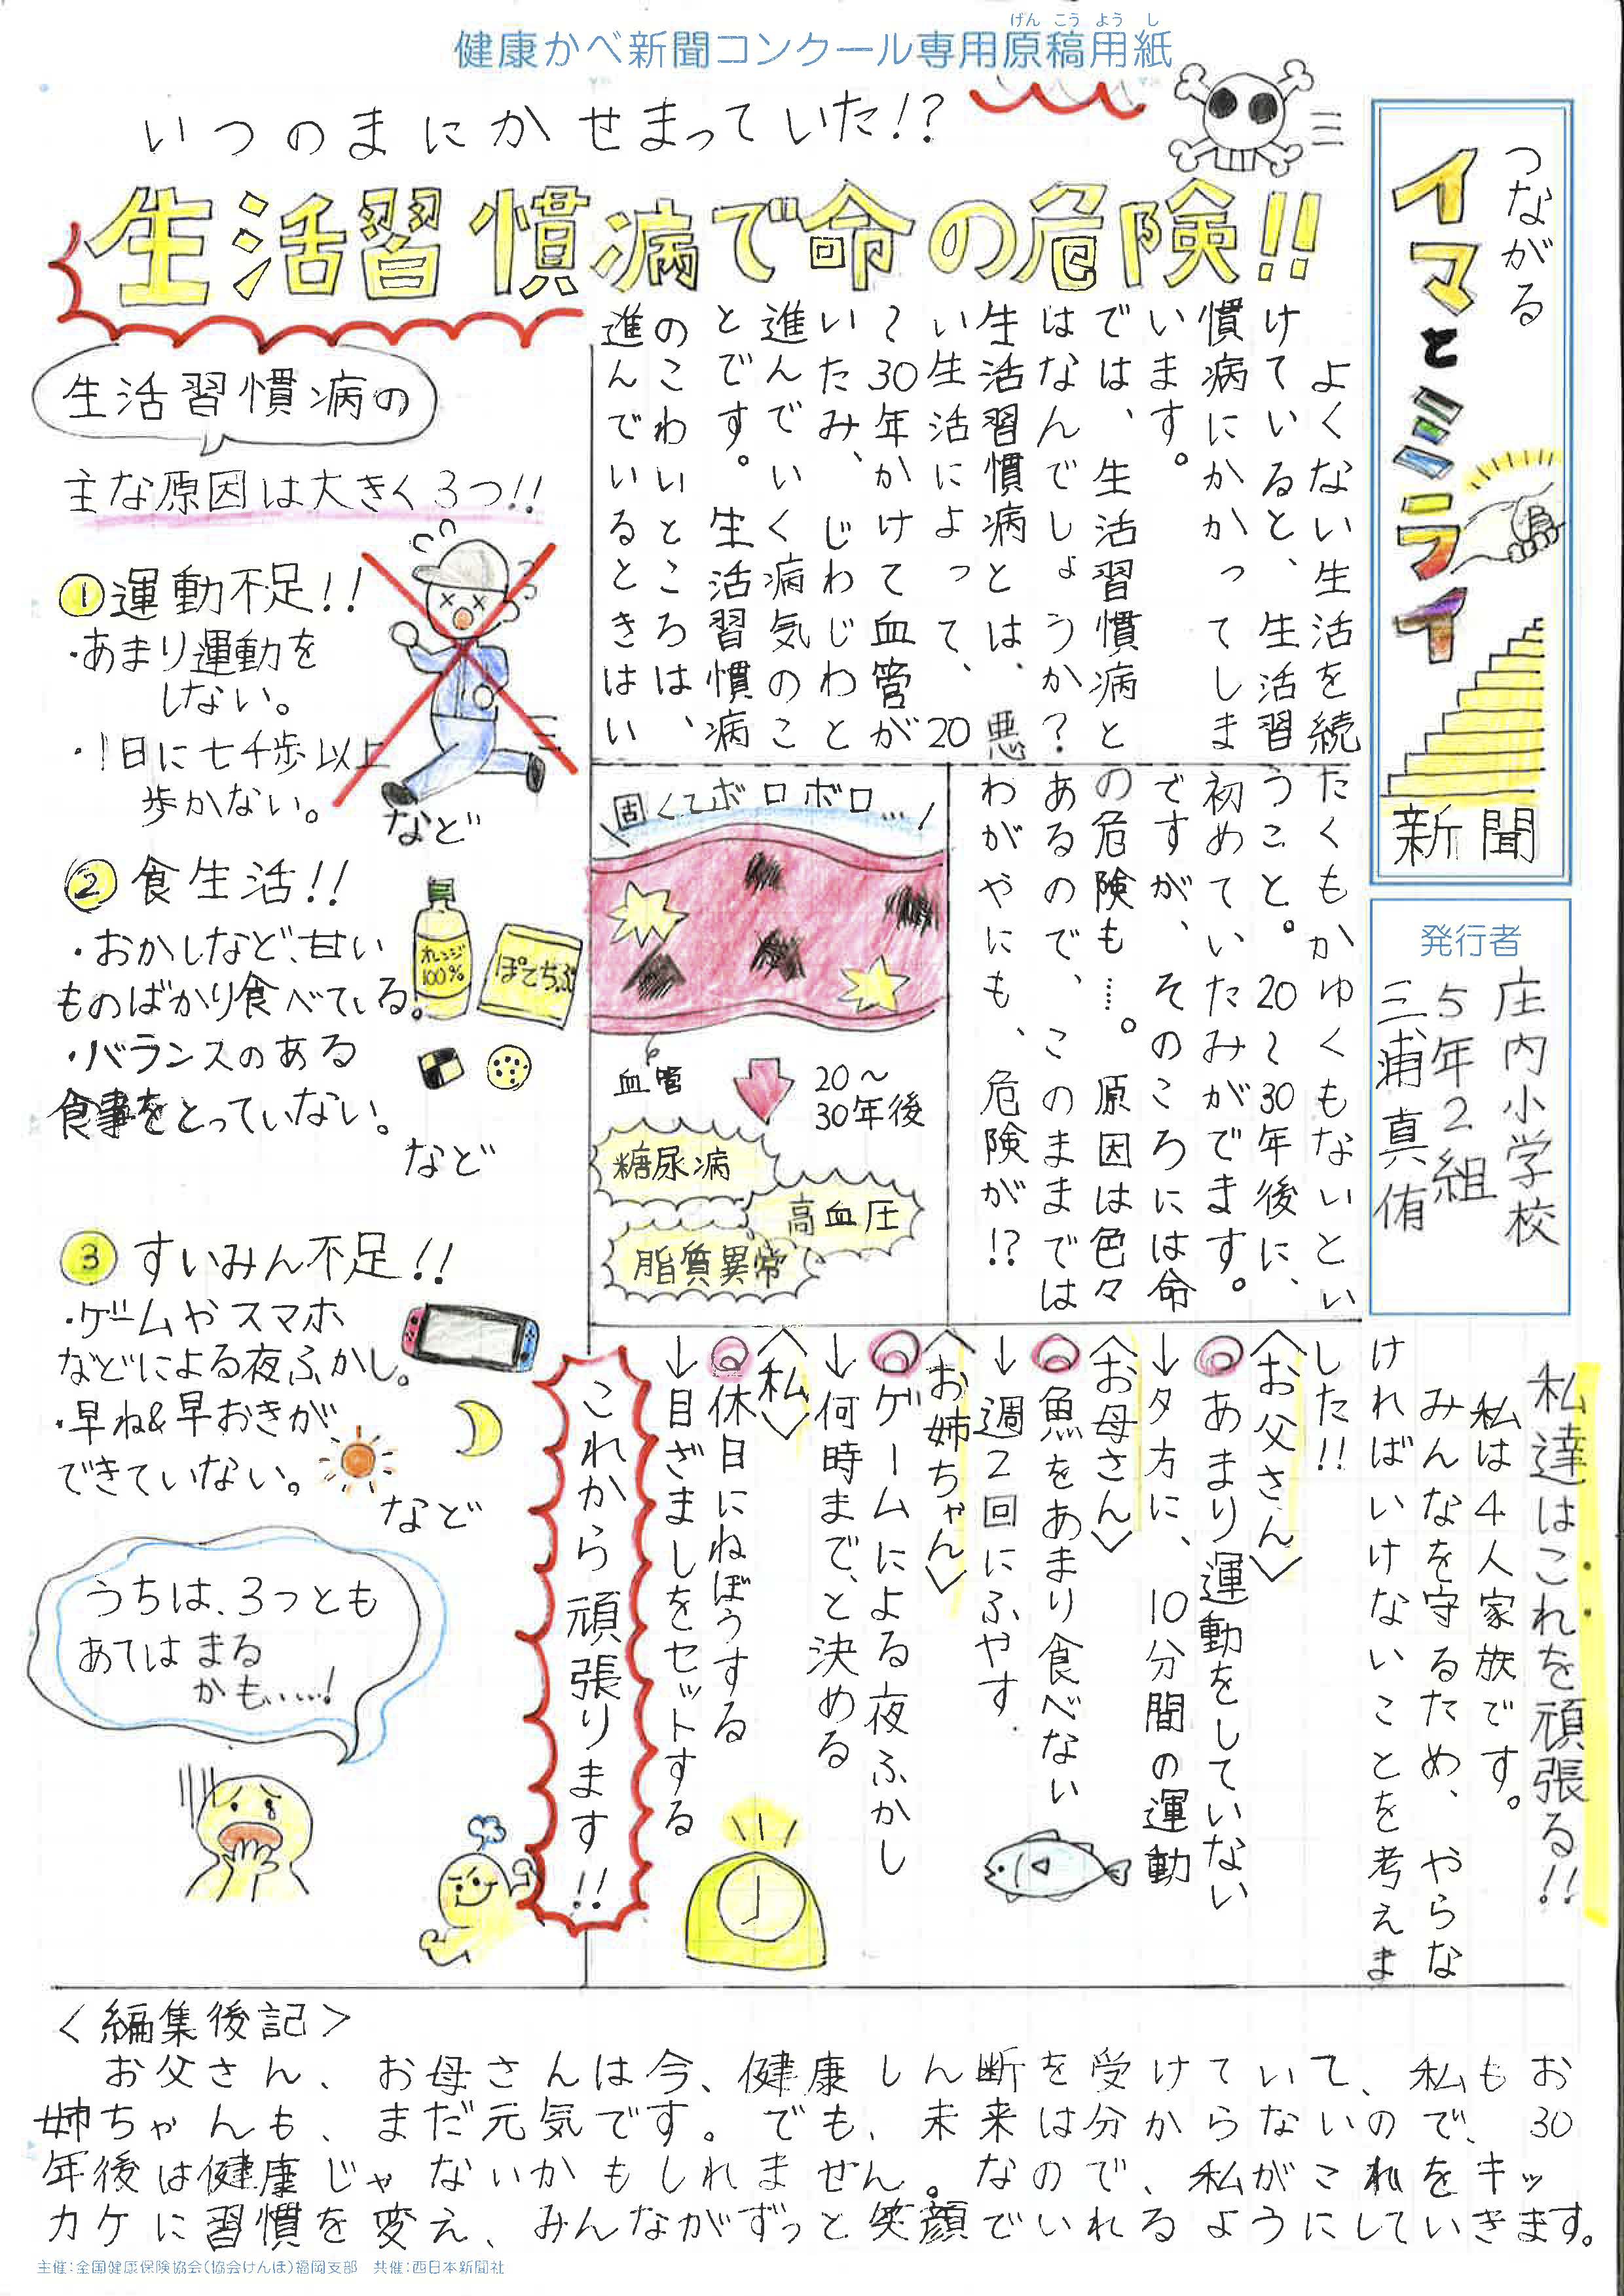 げんこうようし
健康かべ新聞コンクール専用原稿用紙
つながる
イマとミライ
新聞
発行者
庄内小学校
5年2組
三浦真侑
いつのまにかせまっていた!?
生活習慣病で命の危険!!
よくない生活を続
けていると、生活習
慣病にかかってしま
います。
では、生活習慣病と
はなんでしょうか?
生活習慣病とは、悪
い生活によって、20
～30年かけて血管が
いたみ、じわじわと
進んでいく病気のこ
とです。生活習慣病
のこわいところは、
進んでいるときはい
たくもかゆくもないとい
うこと。20～30年後に、
初めていたみがでます。
ですが、そのころには命
の危険も……。原因は色々
あるので、このままでは
わがやにも、危険が!?
固くてボロボロ…
血管
20～
30年後
糖尿病
高血圧
脂質異常
生活習慣病の
主な原因は大きく3つ!!
①運動不足!!
・あまり運動を
しない。
・1日に七千歩以上
歩かない。
など
②食生活!!
・おかしなど、甘い
ものばかり食べている。
・バランスのある
食事をとっていない。
など
オレンジ
100%
ぽてちぷ
③すいみん不足!!
・ゲームやスマホ
などによる夜ふかし。
・早ね&早おきが、
できていない。
など
うちは、3つとも
あてはまる
かも……!
私達はこれを頑張る!!
私は4人家族です。
みんなを守るため、やらな
ければいけないことを考えま
した!!
〈お父さん〉
◎あまり運動をしていない
↓夕方に、10分間の運動
〈お母さん〉
◎魚をあまり食べない
↓週2回にふやす.
〈お姉ちゃん〉
◎ゲームによる夜ふかし
↓何時まで、と決める
〈私〉
◎休日にねぼうする
↓目ざましをセットする
これから頑張ります!!
〈編集後記〉
お父さん、お母さんは今、健康しん断を受けていて、私もお
姉ちゃんも、まだ元気です。でも、未来は分からないので、30
年後は健康じゃないかもしれません。なので、私がこれをキッ
カケに習慣を変え、みんながずっと笑顔でいれるようにしていきます。
主催：全国健康保険協会（協会けんぽ）福岡支部　共催：西日本新聞社